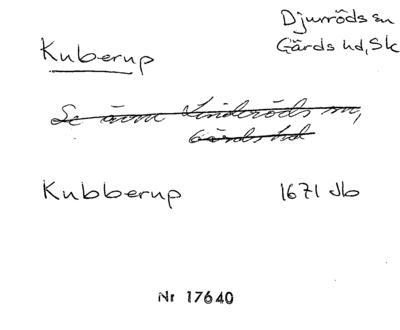 Djurröds sn
Gärds hd, Sk
Kuberup
Se även Linderöds sn,
Gärds hd
Kubberup 1671 Jb
Nr 17640